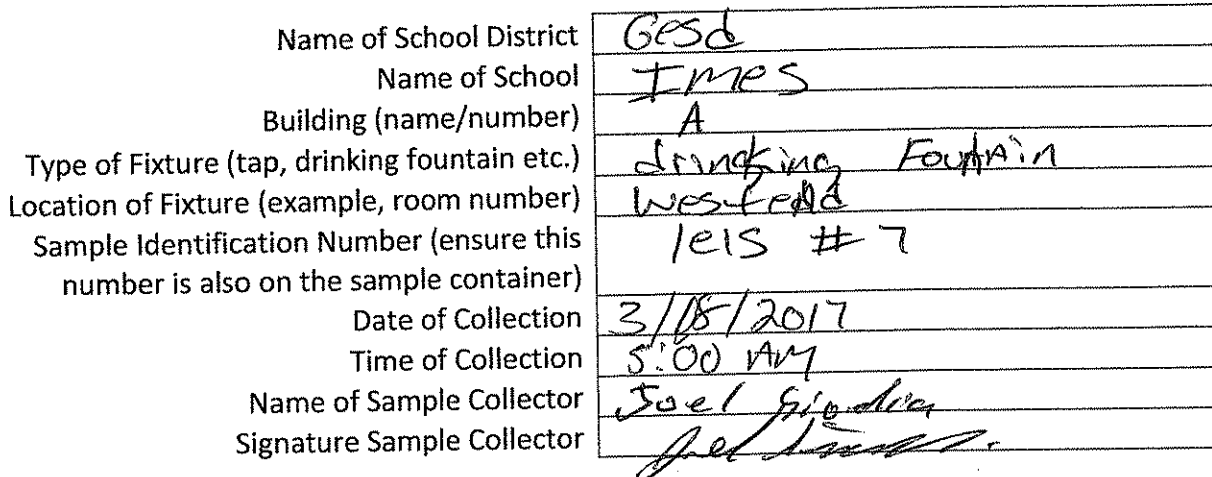 Name of School District Gesd
Name of School Imes
Building (name/number) A
Type of Fixture (tap, drinking fountain etc.) drincking Fountain
Location of Fixture (example, room number) West end
Sample Identification Number (ensure this #7
number is also on the sample container)
Date of Collection 3/ /2017
Time of Collection 5:00 AM
Name of Sample Collector Joel
Signature Sample Collector